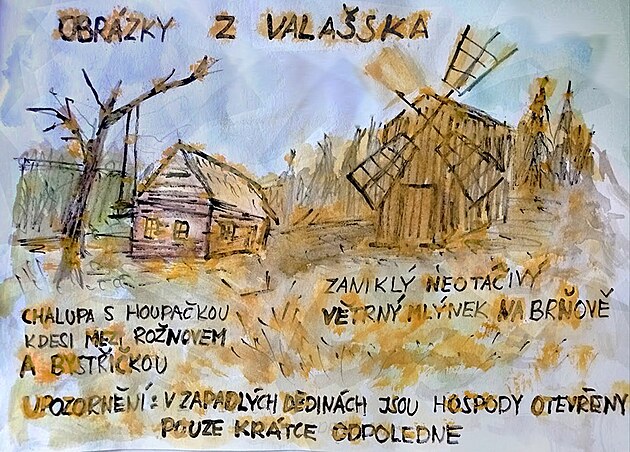 OBRÁZKY Z VALAŠSKA
CHALUPA S HOUPAČKOU
KDESI MEZI ROŽNOVEM
A BYSTŘIČKOU
ZANIKLÝ NEOTÁČIVÝ
VĚTRNÝ MLÝNEK NA BRŇOVĚ
UPOZORNĚNÍ: V ZAPADLÝCH DĚDINÁCH JSOU HOSPODY OTEVŘENY
POUZE KRÁTCE ODPOLEDNE